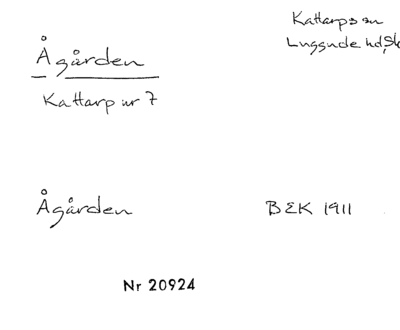 Kattarps sn
Luggude hd, Sk
Ågården
Kattarp nr 7
Ågården
BEK 1911
Nr 20924